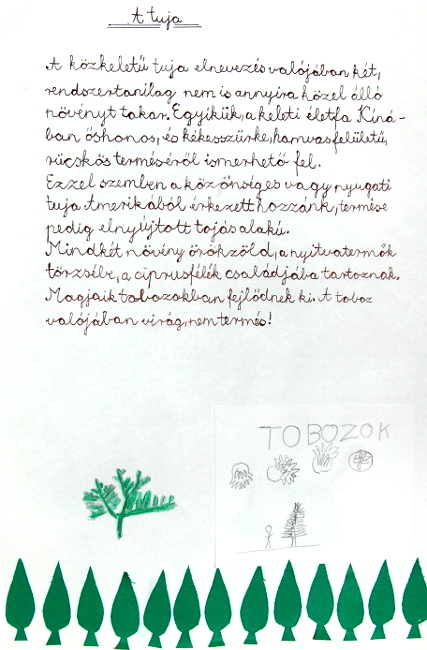 A tuja
A közkeletű tuja elnevezés valójában két,
rendszertanilag nem is annyira közel álló
növényt takar. Egyikük, a keleti életfa Kíná-
ban őshonos, és kékesszürke, hamvas felületű,
rücskös terméséről ismerhető fel.
Ezzel szemben a közönséges vagy nyugati
tuja Amerikából érkezett hozzánk, termése
pedig elnyújtott tojás alakú.
Mindkét növény örökzöld, a nyitvatermők
törzsébe, a ciprusfélék családjába tartoznak.
Magjaik tobozokban fejlődnek ki. A toboz
valójában virág, nem termés!
TOBOZOK